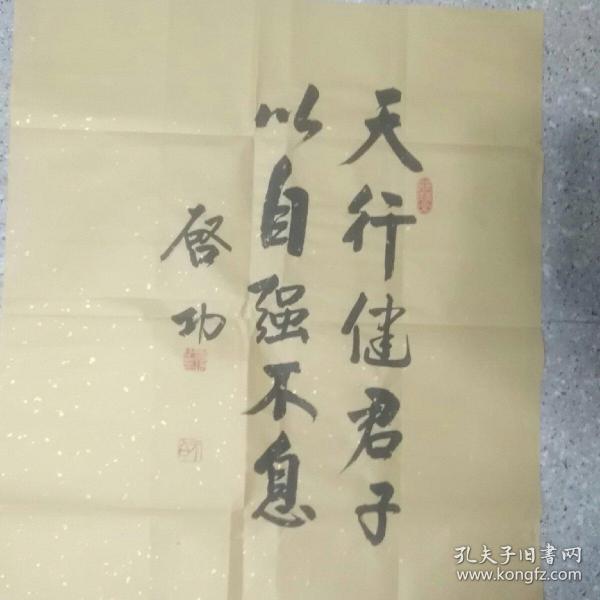 天行健君子
以自强不息
啓功
孔夫子旧书网
www.kongfz.com